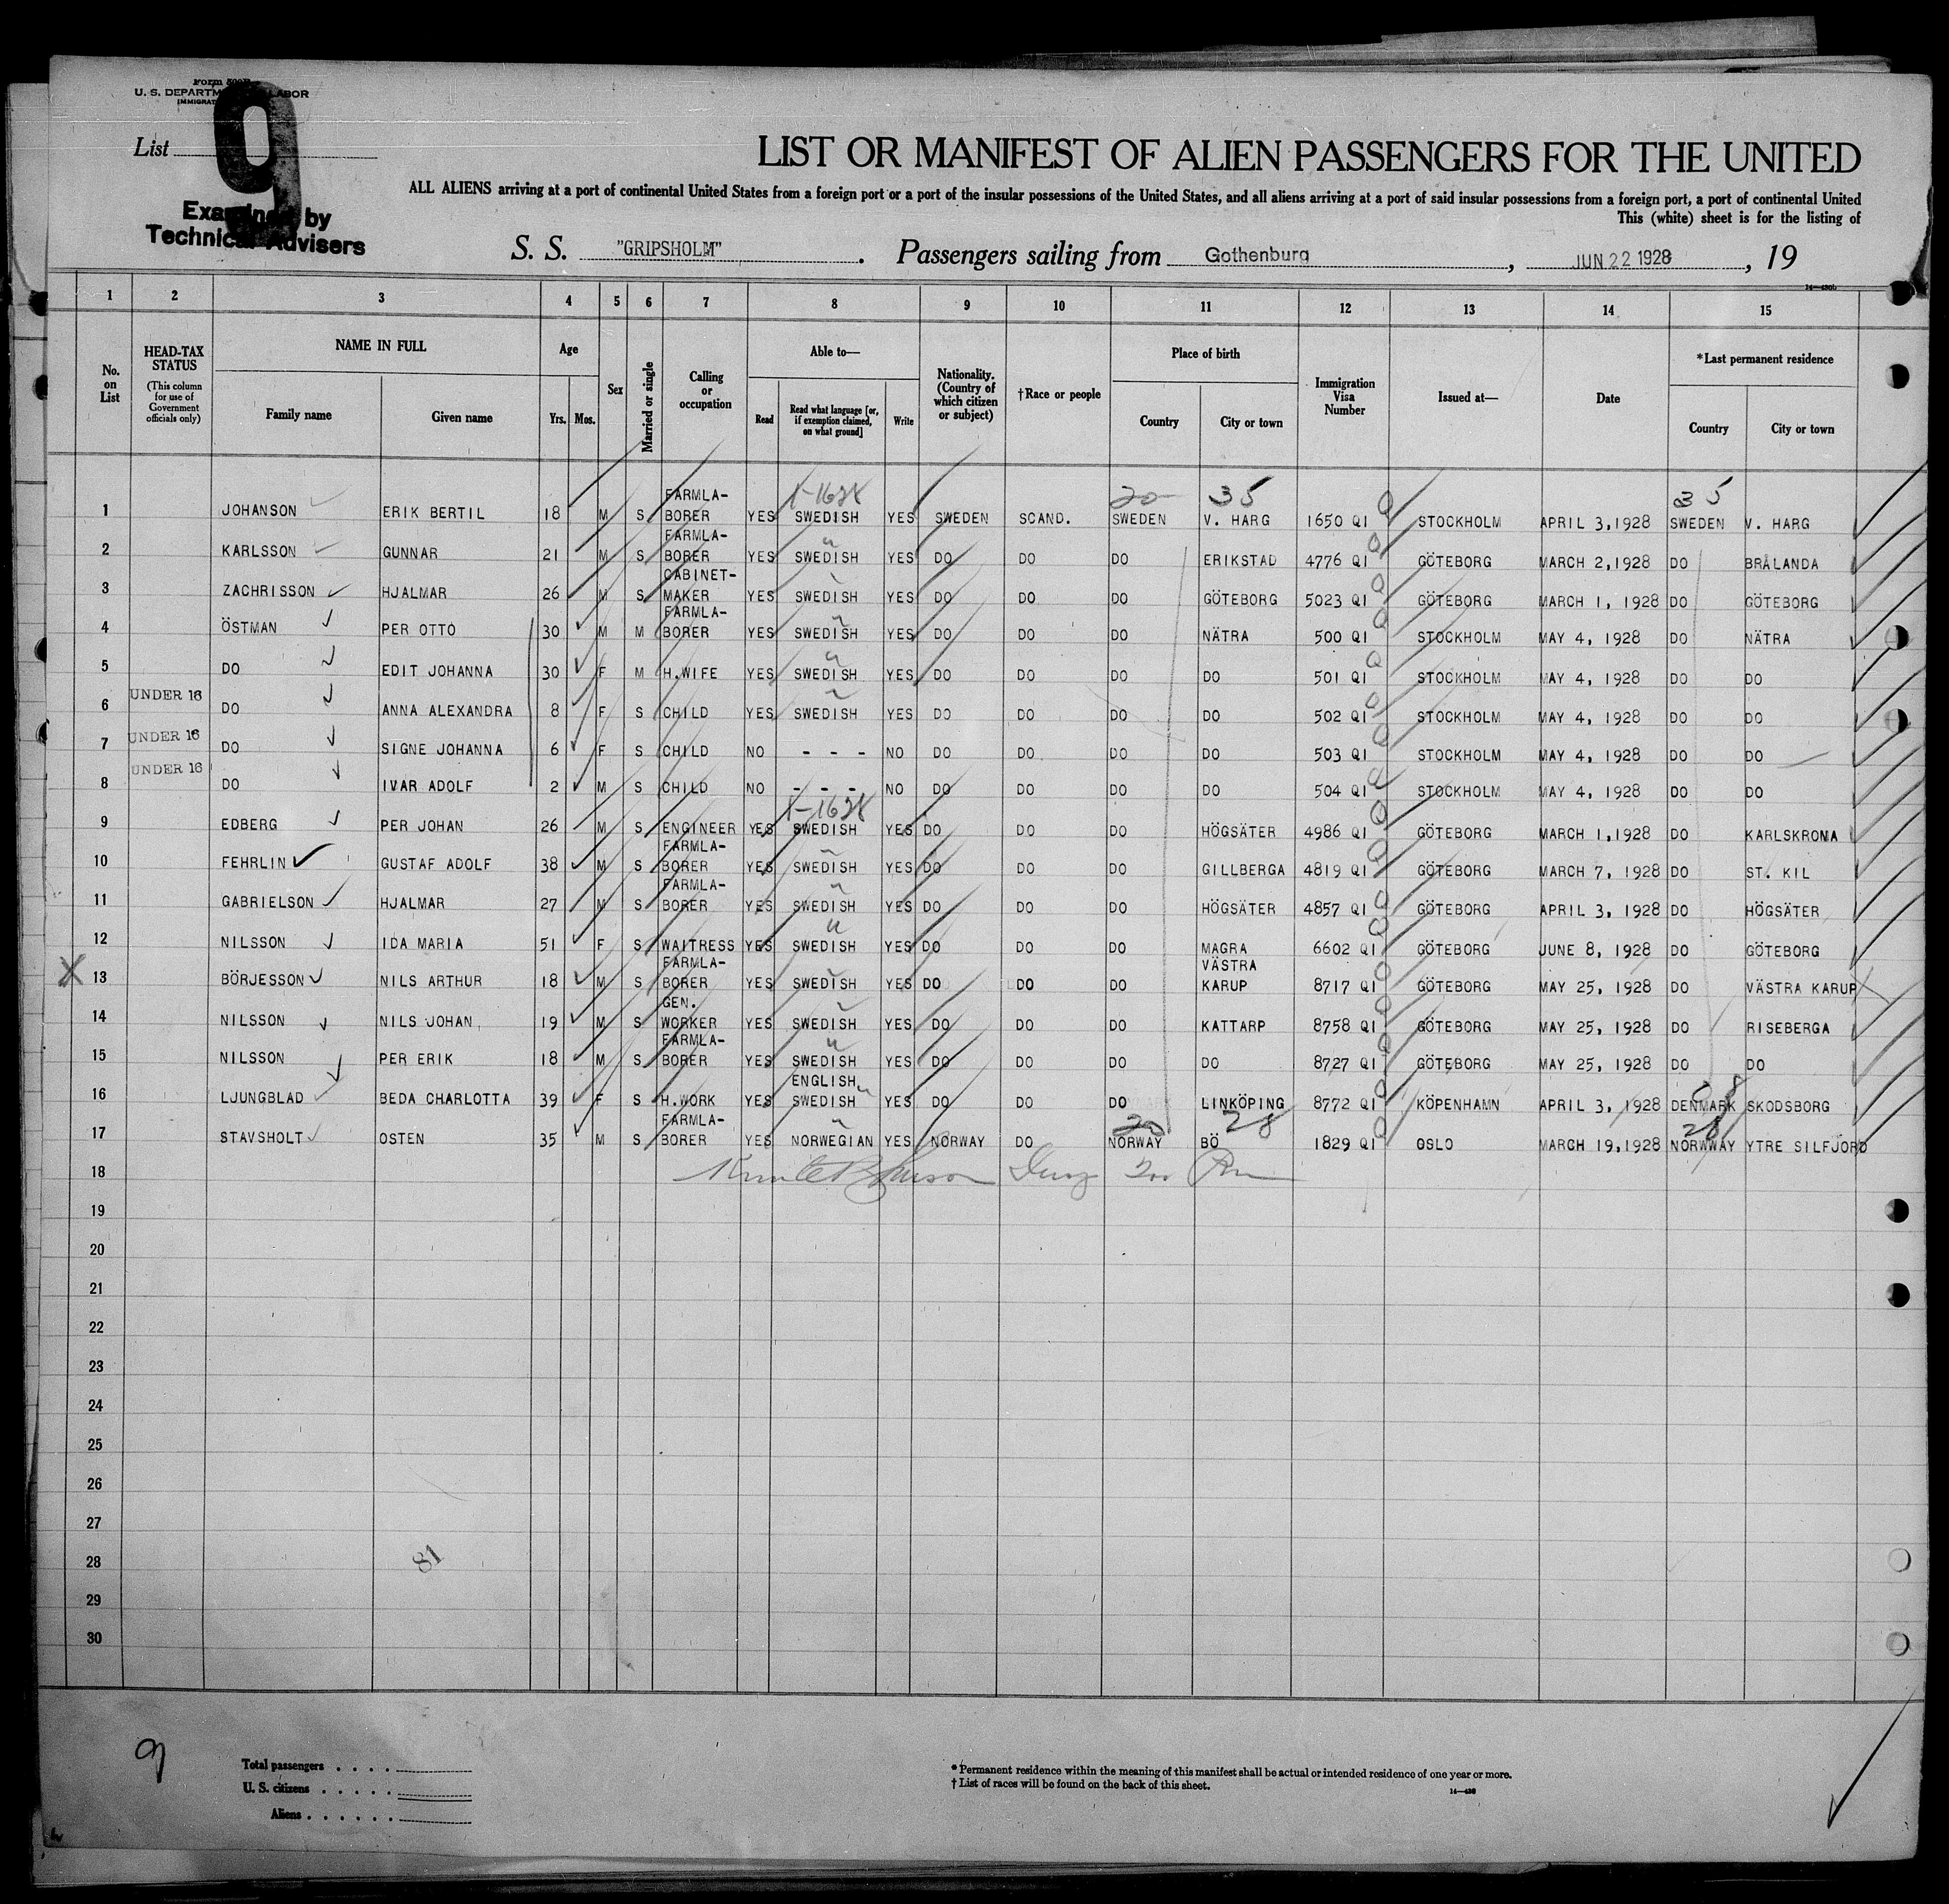 Form 500B
U. S. DEPARTM LABOR
IMMIGRAT
List 9
Examined by
Technical Advisers
LIST OR MANIFEST OF ALIEN PASSENGERS FOR THE UNITED
ALL ALIENS arriving at a port of continental United States from a foreign port or a port of the insular possessions of the United States, and all aliens arriving at a port of said insular possessions from a foreign port, a port of continental United
This (white) sheet is for the listing of
S. S. "GRIPSHOLM". Passengers sailing from Gothenburg, JUN 22 1928, 19
14—430b
1 2 3 4 5 6 7 8 9 10 11 12 13 14 15
No. on List
HEAD-TAX STATUS (This column for use of Government officials only)
NAME IN FULL
Family name Given name
Age
Yrs. Mos.
Sex
Married or single
Calling or occupation
Able to—
Read
Read what language [or, if exemption claimed, on what ground]
Write
Nationality. (Country of which citizen or subject)
†Race or people
Place of birth
Country City or town
Immigration Visa Number
Issued at—
Date
*Last permanent residence
Country City or town
1-1628 20 35 35
1 JOHANSON ERIK BERTIL 18 M S FARMLA-BORER YES SWEDISH YES SWEDEN SCAND. SWEDEN V. HARG 1650 QI STOCKHOLM APRIL 3,1928 SWEDEN V. HARG
2 KARLSSON GUNNAR 21 M S FARMLA-BORER YES SWEDISH YES DO DO DO ERIKSTAD 4776 QI GÖTEBORG MARCH 2,1928 DO BRÅLANDA
3 ZACHRISSON HJALMAR 26 M S CABINET-MAKER YES SWEDISH YES DO DO DO GÖTEBORG 5023 QI GÖTEBORG MARCH 1, 1928 DO GÖTEBORG
4 ÖSTMAN PER OTTO 30 M M FARMLA-BORER YES SWEDISH YES DO DO DO NÄTRA 500 QI STOCKHOLM MAY 4, 1928 DO NÄTRA
5 DO EDIT JOHANNA 30 F M H.WIFE YES SWEDISH YES DO DO DO DO 501 QI STOCKHOLM MAY 4, 1928 DO DO
6 UNDER 16 DO ANNA ALEXANDRA 8 F S CHILD YES SWEDISH YES DO DO DO DO 502 QI STOCKHOLM MAY 4, 1928 DO DO
7 UNDER 16 DO SIGNE JOHANNA 6 F S CHILD NO - - - NO DO DO DO DO 503 QI STOCKHOLM MAY 4, 1928 DO DO
8 UNDER 16 DO IVAR ADOLF 2 M S CHILD NO - - - NO DO DO DO DO 504 QI STOCKHOLM MAY 4, 1928 DO DO
1-1628
9 EDBERG PER JOHAN 26 M S ENGINEER YES SWEDISH YES DO DO DO HÖGSÄTER 4986 QI GÖTEBORG MARCH 1,1928 DO KARLSKRONA
10 FEHRLIN GUSTAF ADOLF 38 M S FARMLA-BORER YES SWEDISH YES DO DO DO GILLBERGA 4819 QI GÖTEBORG MARCH 7, 1928 DO ST. KIL
11 GABRIELSON HJALMAR 27 M S FARMLA-BORER YES SWEDISH YES DO DO DO HÖGSÄTER 4857 QI GÖTEBORG APRIL 3, 1928 DO HÖGSÄTER
12 NILSSON IDA MARIA 51 F S WAITRESS YES SWEDISH YES DO DO DO MAGRA 6602 QI GÖTEBORG JUNE 8, 1928 DO GÖTEBORG
X 13 BÖRJESSON NILS ARTHUR 18 M S FARMLA-BORER YES SWEDISH YES DO DO DO VÄSTRA KARUP 8717 QI GÖTEBORG MAY 25, 1928 DO VÄSTRA KARUP
14 NILSSON NILS JOHAN 19 M S GEN. WORKER YES SWEDISH YES DO DO DO KATTARP 8758 QI GÖTEBORG MAY 25, 1928 DO RISEBERGA
15 NILSSON PER ERIK 18 M S FARMLA-BORER YES SWEDISH YES DO DO DO DO 8727 QI GÖTEBORG MAY 25, 1928 DO DO
16 LJUNGBLAD BEDA CHARLOTTA 39 F S H.WORK YES ENGLISH SWEDISH YES DO DO DO LINKÖPING 8772 QI KÖPENHAMN APRIL 3, 1928 DENMARK SKODSBORG
20 28 28
17 STAVSHOLT OSTEN 35 M S FARMLA-BORER YES NORWEGIAN YES NORWAY DO NORWAY BÖ 1829 QI OSLO MARCH 19,1928 NORWWAY YTRE SILFJORD
18
19
20
21
22
23
24
25
26
27
28
81
29
30
9
Total passengers
U. S. citizens
Aliens
* Permanent residence within the meaning of this manifest shall be actual or intended residence of one year or more.
† List of races will be found on the back of this sheet.
14—430